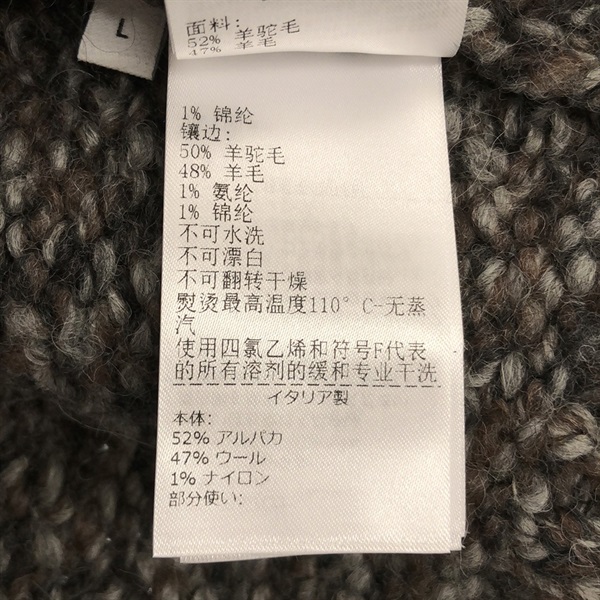 L
面料:
52% 羊驼毛
47% 羊毛
1% 锦纶
镶边:
50% 羊驼毛
48% 羊毛
1% 氨纶
1% 锦纶
不可水洗
不可漂白
不可翻转干燥
熨烫最高温度110° C-无蒸
汽
使用四氯乙烯和符号F代表
的所有溶剂的缓和专业干洗
イタリア製
本体:
52% アルパカ
47% ウール
1% ナイロン
部分使い: